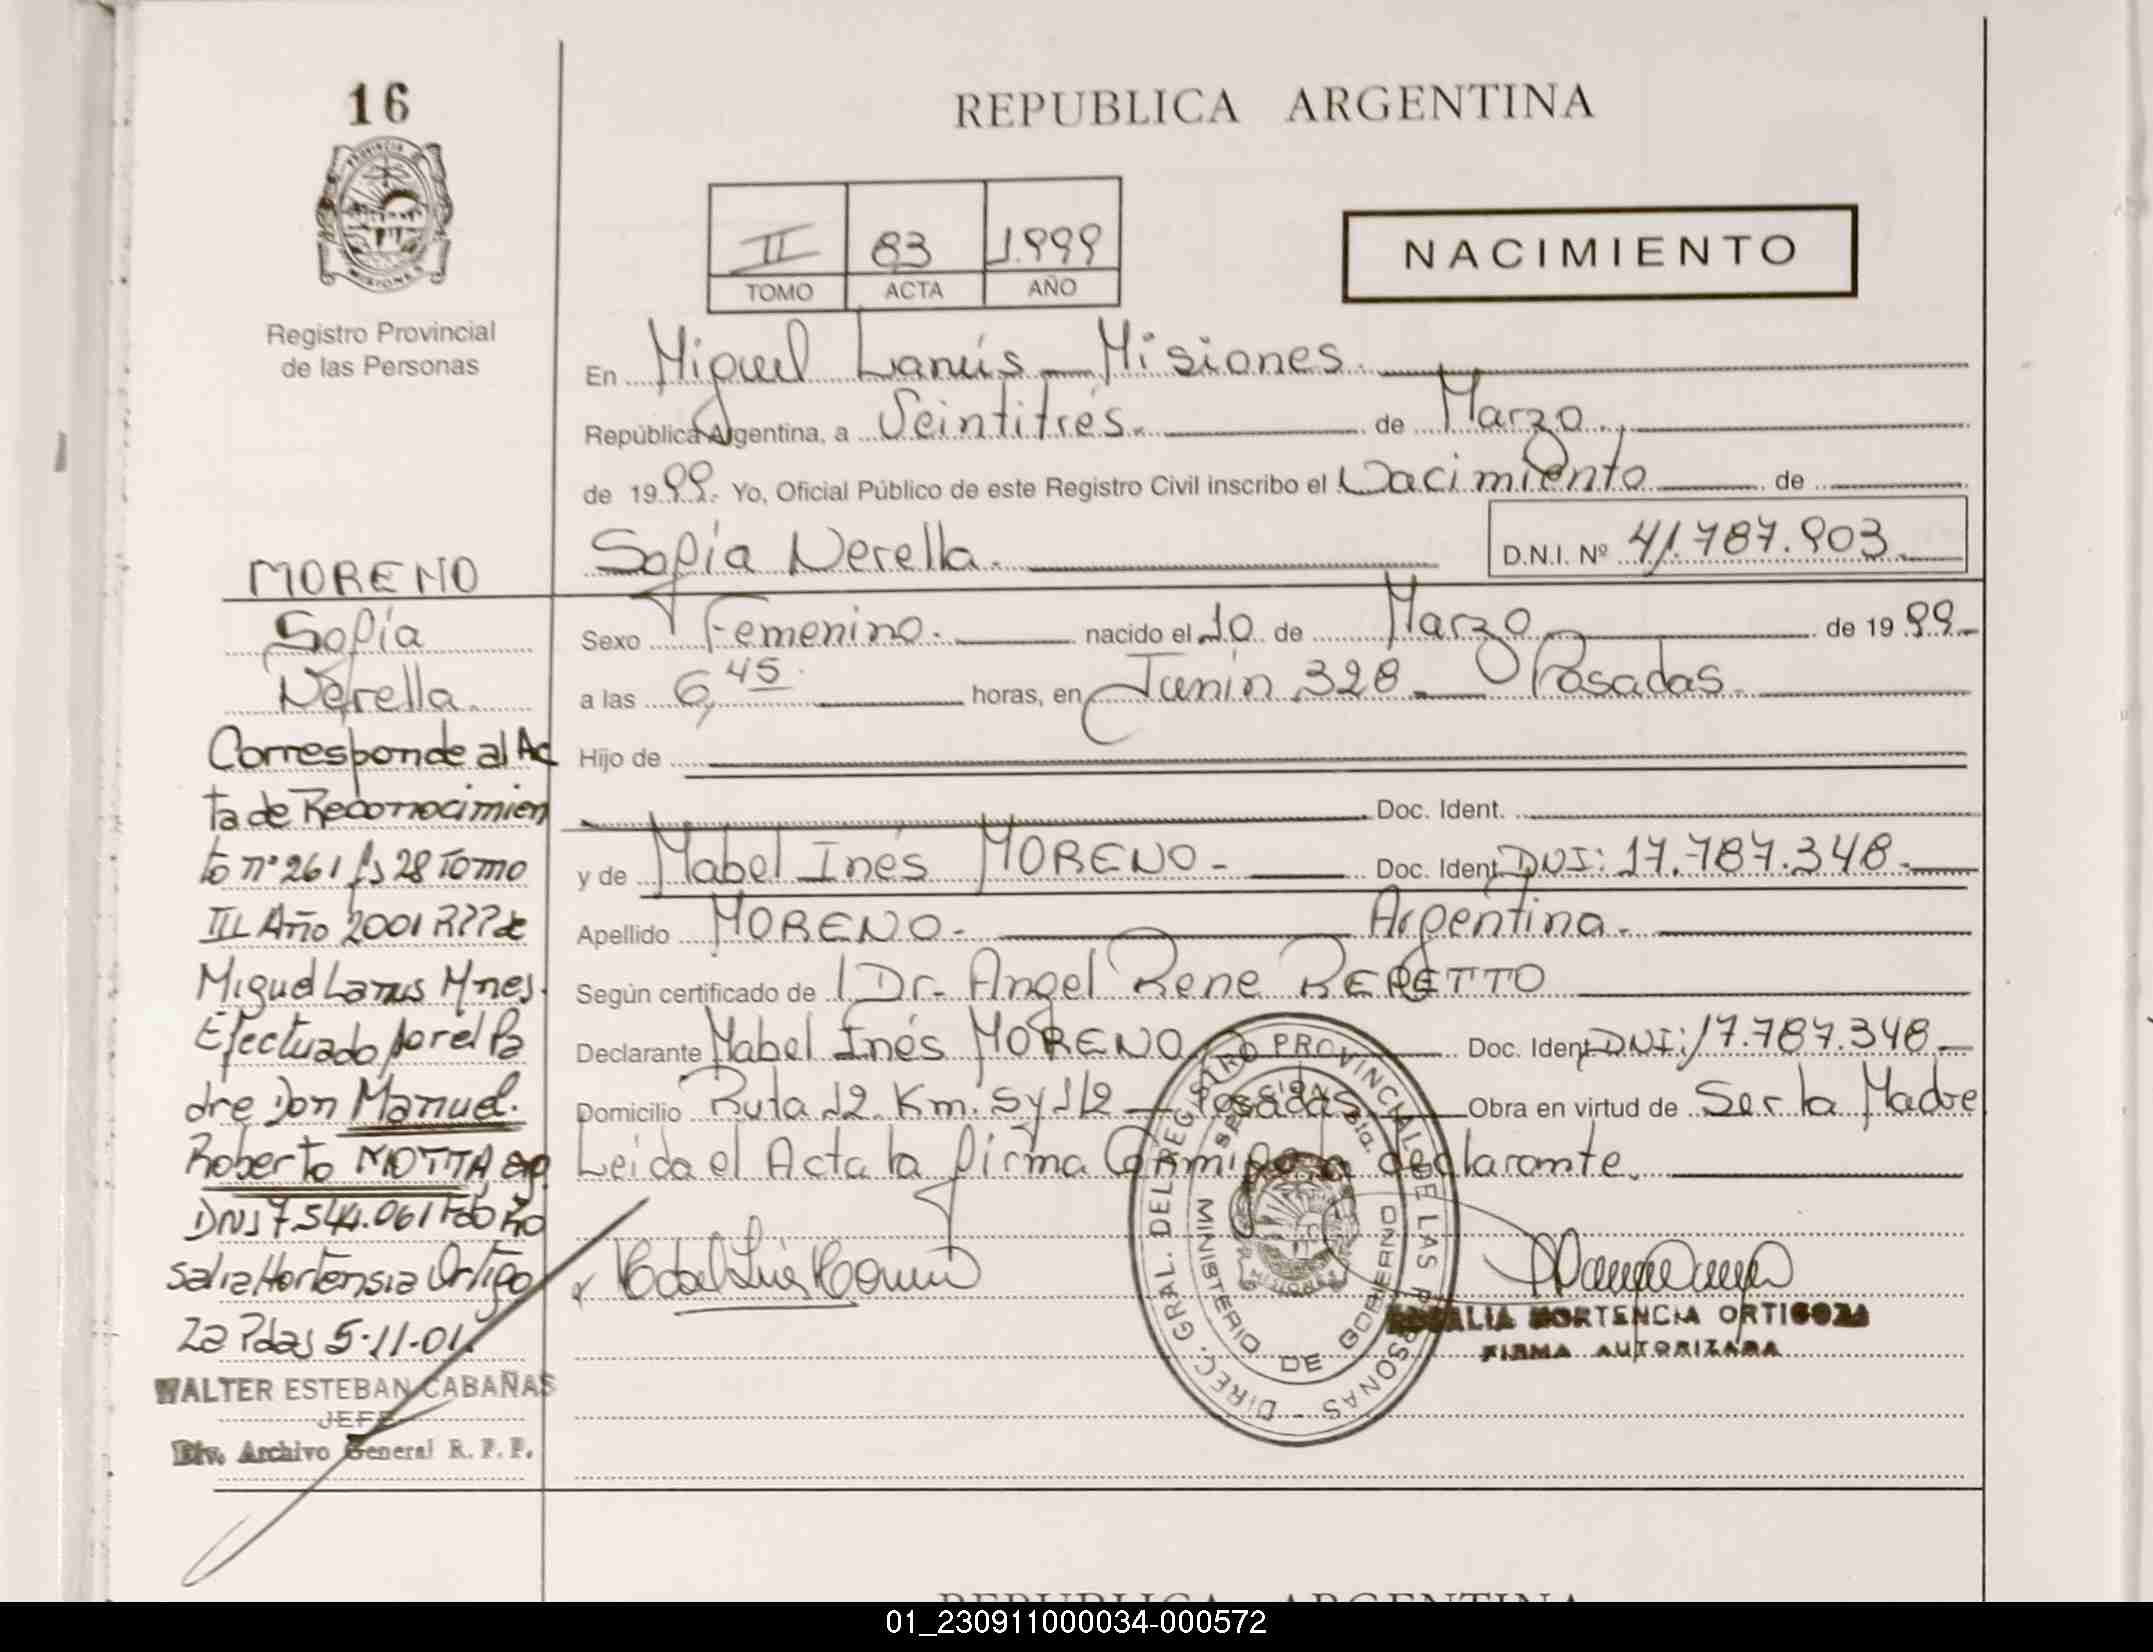 16
REPUBLICA ARGENTINA
PROVINCIA DE
MISIONES
Registro Provincial
de las Personas
II 83 1.999
TOMO ACTA AÑO
NACIMIENTO
En Miguel Lanús - Misiones.
República Argentina, a Veintitrés. de Marzo.
de 1999. Yo, Oficial Público de este Registro Civil inscribo el Nacimiento de
Sofía Nerella. D.N.I. Nº 41.787.903.
Sexo Femenino. nacido el 10 de Marzo de 1999.
a las 6,45 horas, en Junín 328 - Posadas.
Hijo de
Doc. Ident.
y de Mabel Inés MORENO - Doc. Ident. DNI: 17.787.348.
Apellido MORENO. Argentina.
Según certificado de Dr. Angel Rene BERETTO
Declarante Mabel Inés MORENO Doc. Ident. DNI: 17.787.348
Domicilio Ruta 12 Km. 5 y 1/2 - Posadas. Obra en virtud de Ser la Madre
Leida el Acta la firma Conmigo la declarante.
MORENO
Sofía
Nerella.
Corresponde al Ac
ta de Reconocimien
to nº 261 fs 28 Tomo
III Año 2001 RPP de
Miguel Lanus Mnes.
Efectuado por el Pa
dre Don Manuel.
Roberto MOTTA
DNI 7.544.061 Ro
salia Hortensia Ortigo
za Pdas 5-11-01.
WALTER ESTEBAN CABAÑAS
JEFE
Div. Archivo General R. P. P.
DIREC. GRAL. DEL REGISTRO PROVINCIAL DE LAS PERSONAS
MINISTERIO DE GOBIERNO
MISIONES
ROSALIA HORTENCIA ORTIGOZA
FIRMA AUTORIZADA
REPUBLICA ARGENTINA
01_230911000034-000572